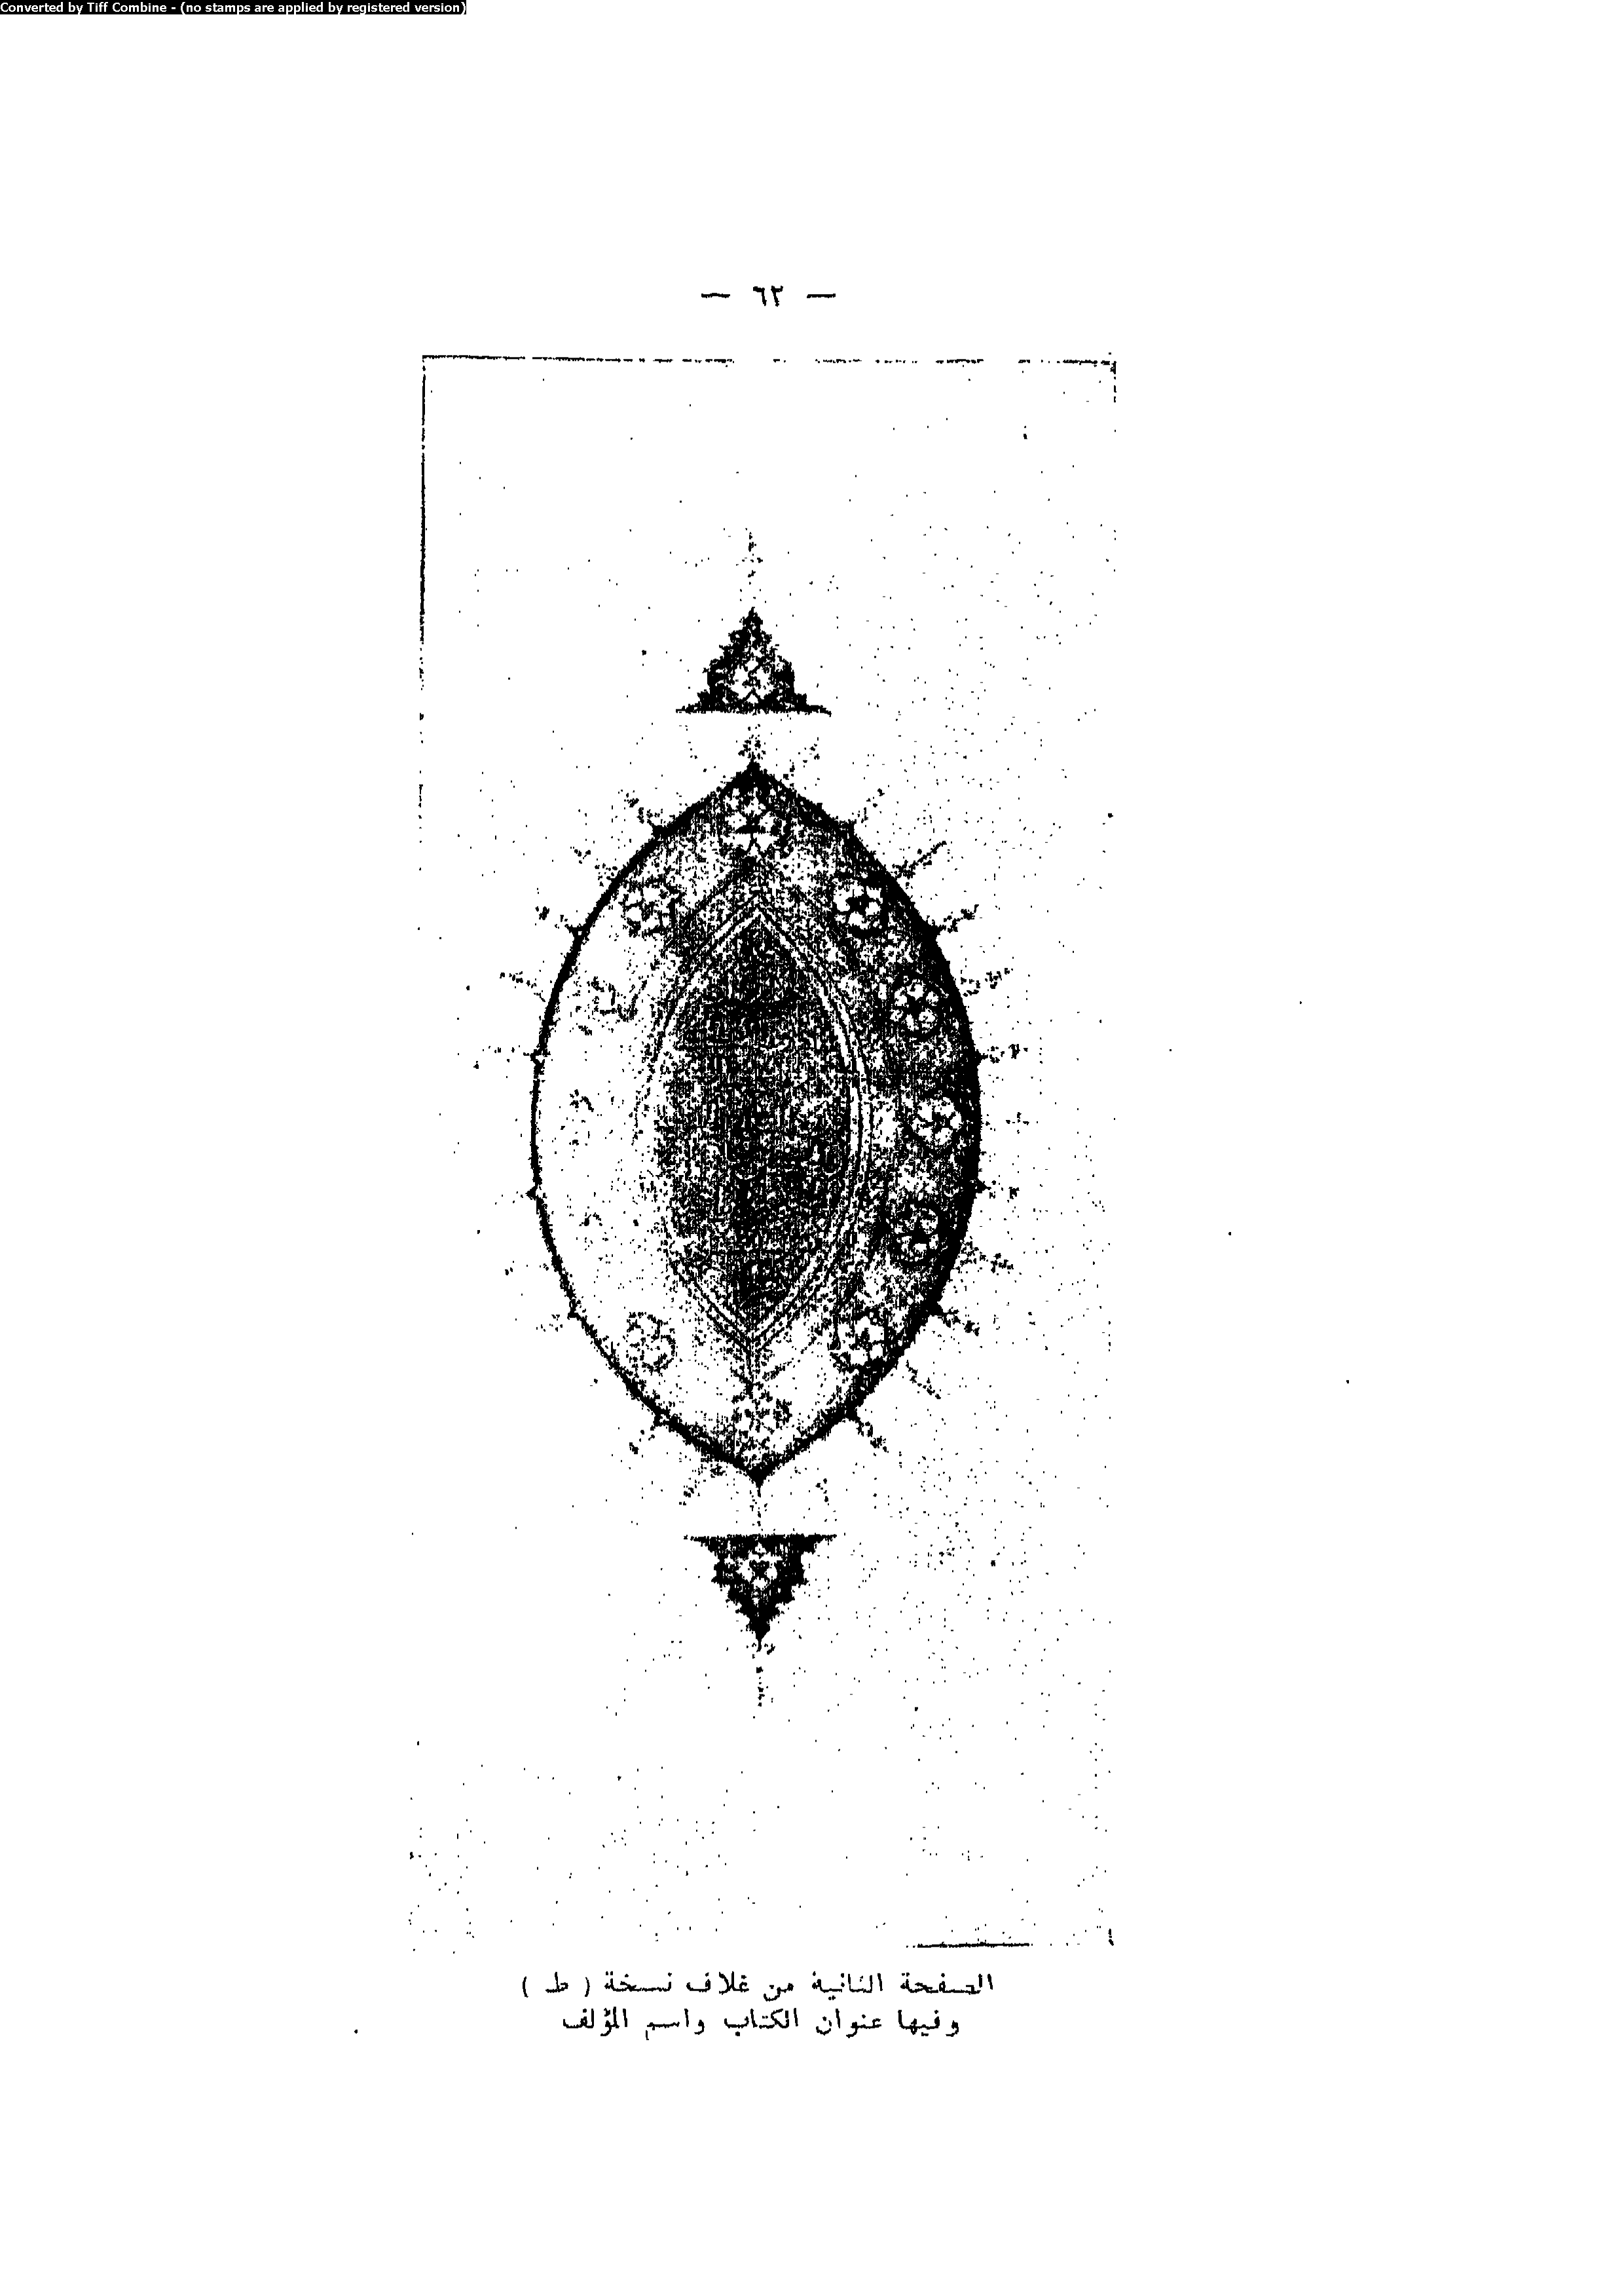 Converted by Tiff Combine - (no stamps are applied by registered version)
— ٦٣ —
الصفحة الثانية من غلاف نسخة ( ط )
وفيها عنوان الكتاب واسم المؤلف